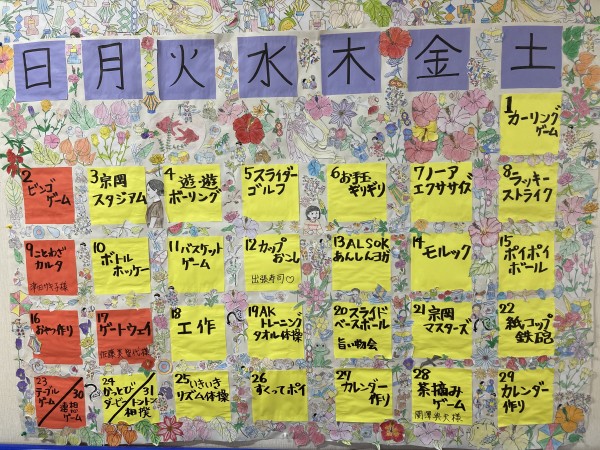 日 月 火 水 木 金 土
1
カーリング
ゲーム
2
ビンゴ
ゲーム
3 京岡
スタジアム
4 遊・遊
ボーリング
5 スライダー
ゴルフ
6 お手玉
ギリギリ
7 ノーア
エクササイズ
8 ラッキー
ストライク
9 ことわざ
カルタ
10
ボトル
ホッケー
11 バスケット
ゲーム
12 カップ
おこし
出張寿司♡
13 ALSOK
あんしんヨガ
14
モルック
15
ポイポイ
ボール
16
おやつ作り
17
ゲートウェイ
18
工作
19 AK
トレーニング
タオル体操
20 スライド
ベースボール
旨い物会
21 京岡
マスターズ
22
紙コップ
鉄砲
23
テーブル
ゲーム
30
連想
ゲーム
24
かっとび
ダービー
31
トントン
相撲
25 いきいき
リズム体操
26
すくってポイ
27
カレンダー
作り
28
茶摘み
ゲーム
29
カレンダー
作り